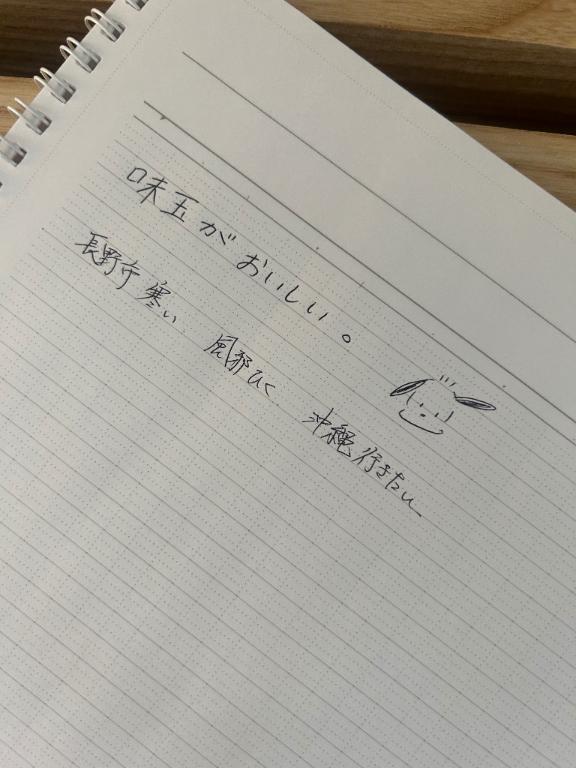 味玉がおいしい。
長野寒い 風邪ひく 沖縄行きたい